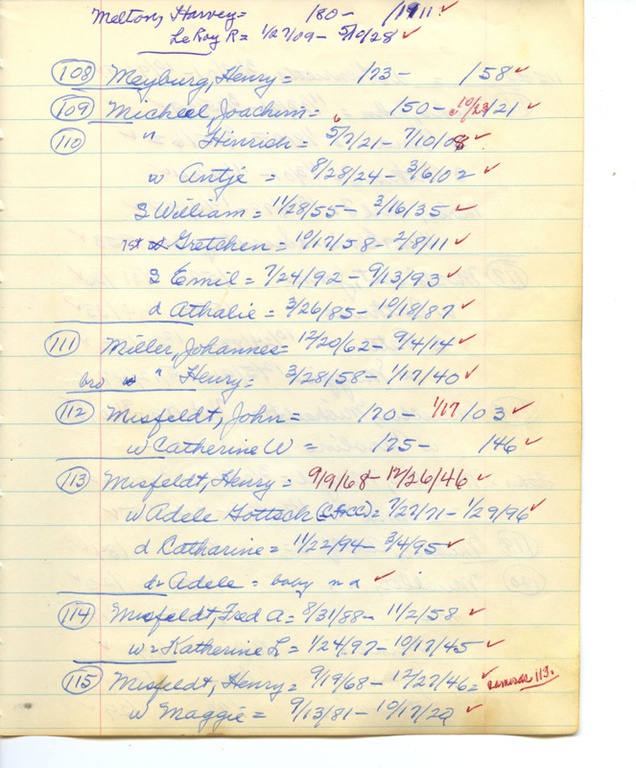 Melton, Harvey = /80 - /1911 ✓
LeRoy R = 1/27/09 - 5/10/28 ✓
108 Meyburg, Henry = /73 - /58 ✓
109 Micheel, Joachim = /50 - 10/23/21 ✓
110 " Hinrich = 5/7/21 - 7/10/08 ✓
w Antje = 8/28/24 - 3/6/02 ✓
S William = 11/28/55 - 3/16/35 ✓
1st Gretchen = 10/17/58 - 2/8/11 ✓
S Emil = 7/24/92 - 9/13/93 ✓
d Athalie = 3/26/85 - 10/18/87 ✓
111 Miller, Johannes = 12/20/62 - 9/4/14 ✓
bro " Henry = 3/28/58 - 1/17/40 ✓
112 Misfeldt, John = /70 - 1/17/03 ✓
w Catherine W = /75 - /46 ✓
113 Misfeldt, Henry = 9/9/68 - 12/26/46 ✓
w Adele Gottsch = 7/27/71 - 1/29/96 ✓
d Catharine = 11/22/94 - 3/4/95 ✓
Adele = baby n d ✓
114 Misfeldt, Fred A = 8/31/88 - 11/2/58 ✓
w = Katherine L = 1/24/97 - 10/17/45 ✓
115 Misfeldt, Henry = 9/19/68 - 12/27/46 = ✓ 113.
w Maggie = 9/13/81 - 10/17/20 ✓